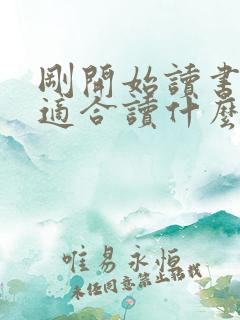 剛開始讀書
適合讀什麼
唯易永恆
未經同意禁止轉載